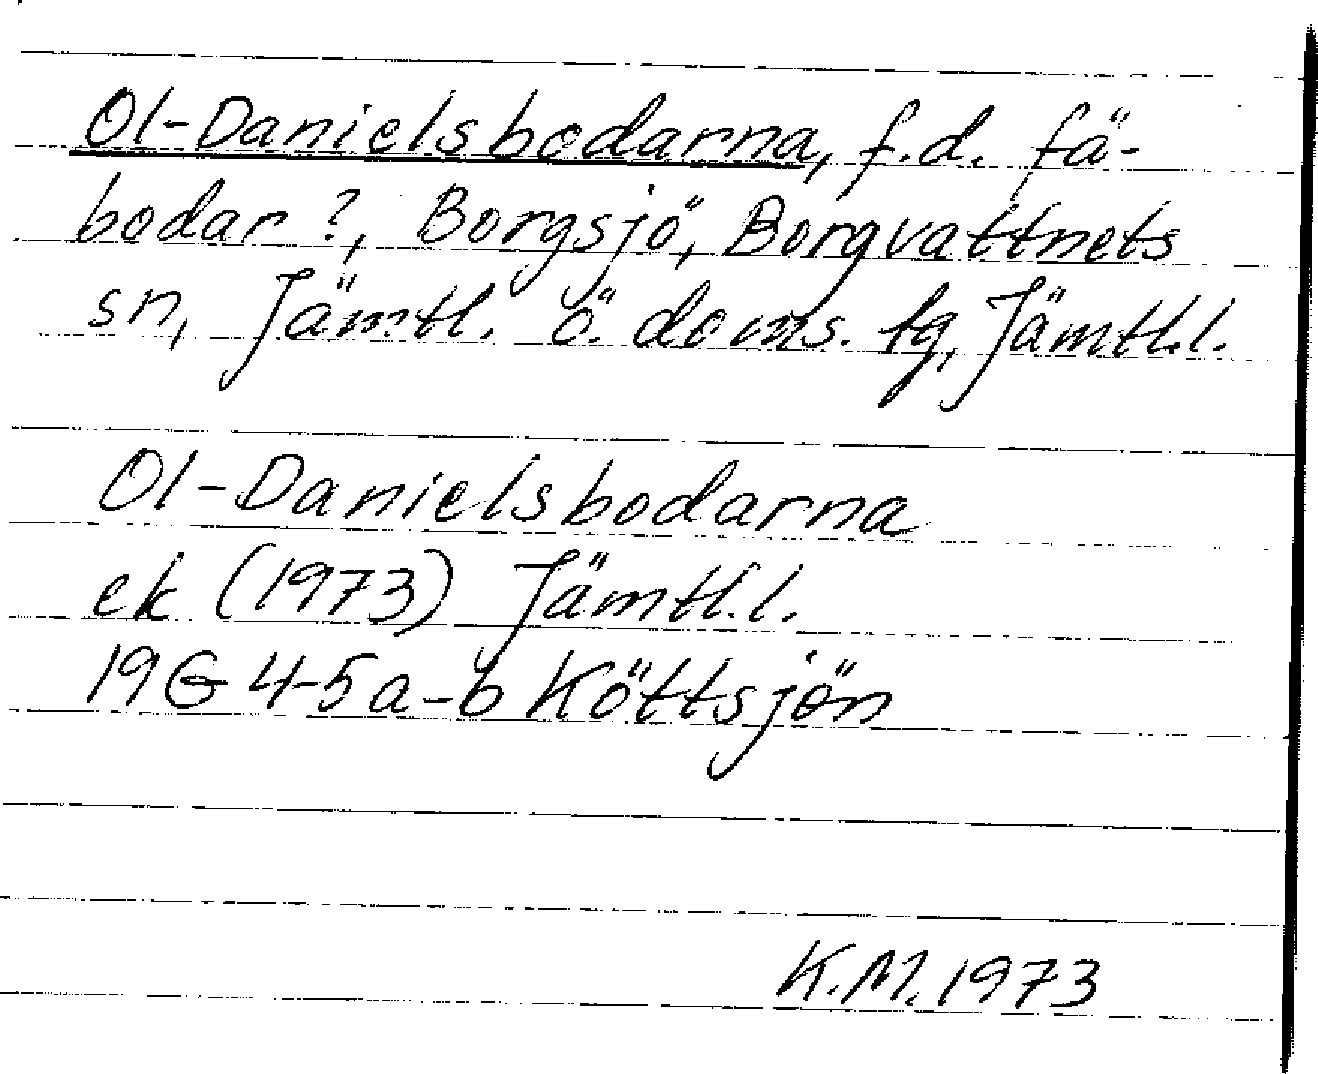 Ol-Danielsbodarna, f.d. fä-
bodar?, Borgsjö, Borgvattnets
sn, Jämtl. ö. doms. tg, Jämtl.l.
Ol-Danielsbodarna
ek (1973) Jämtl.l.
19G 4-5a-b Köttsjön
K.M. 1973